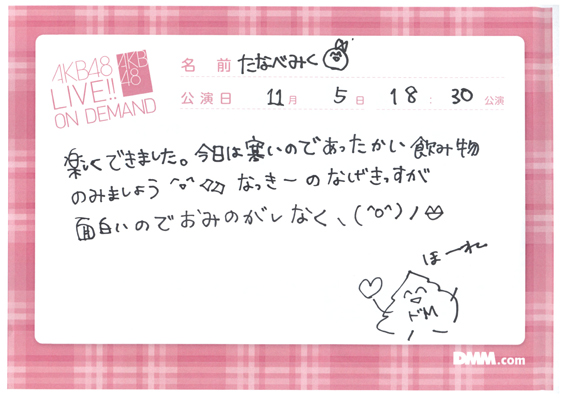 AKB48
LIVE!!
ON DEMAND
AKB
48
名 前 たなべみく
公演日 11月 5日 18:30 公演
楽しくできました。今日は寒いのであったかい飲み物
のみましょう ^o^ なっきーのなげきっすが
面白いのでおみのがしなく、(^o^)ノ
ほーれ
ドM
DMM.com